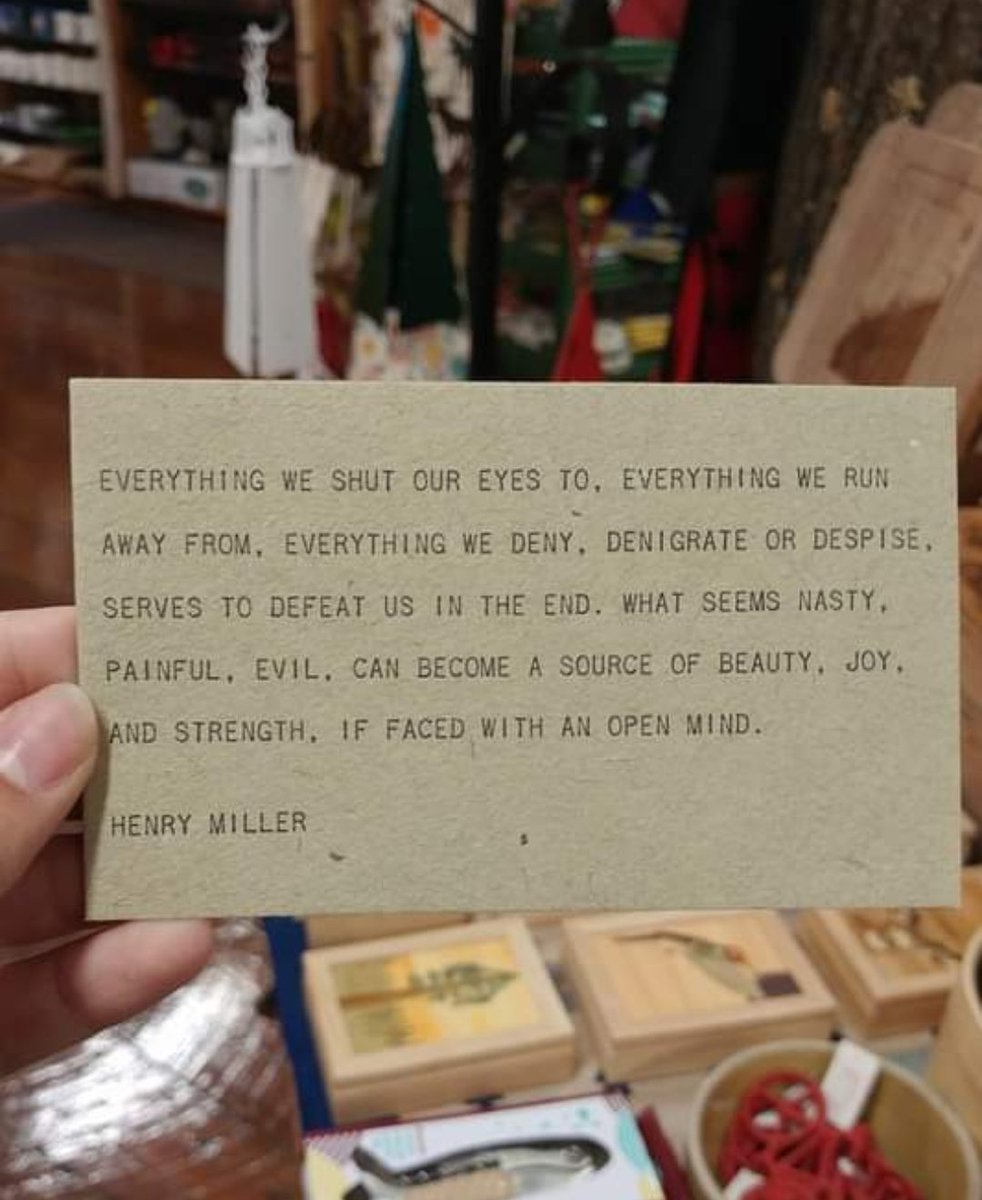 EVERYTHING WE SHUT OUR EYES TO, EVERYTHING WE RUN
AWAY FROM, EVERYTHING WE DENY, DENIGRATE OR DESPISE,
SERVES TO DEFEAT US IN THE END. WHAT SEEMS NASTY,
PAINFUL, EVIL, CAN BECOME A SOURCE OF BEAUTY, JOY,
AND STRENGTH, IF FACED WITH AN OPEN MIND.
HENRY MILLER